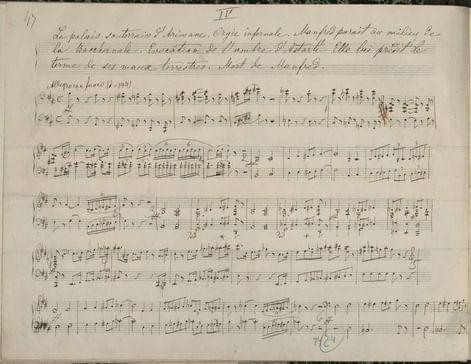 47
IV
Le palais souterrain d'Arimane. Orgie infernale. Manfred paraît au milieu de
la Bacchanale. Evocation de l'ombre d'Astarté. Elle lui prédit le
terme de ses maux terrestres. Mort de Manfred.
Allegro con fuoco
24